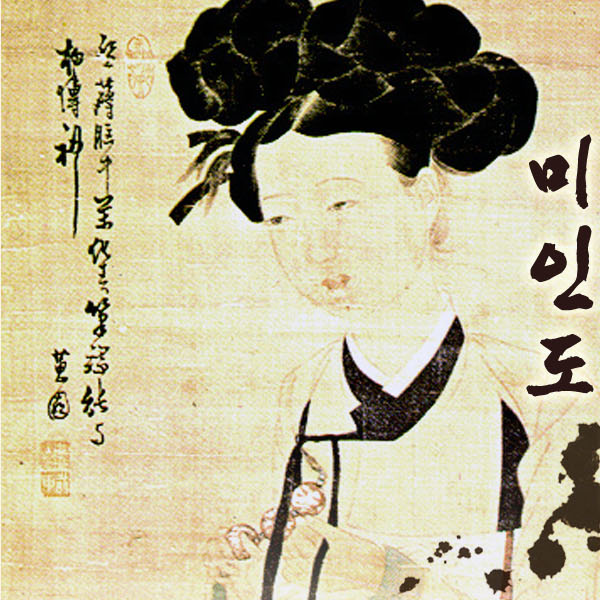 미인도
盤薄胸中萬化春筆端能與
物傳神
蕙園